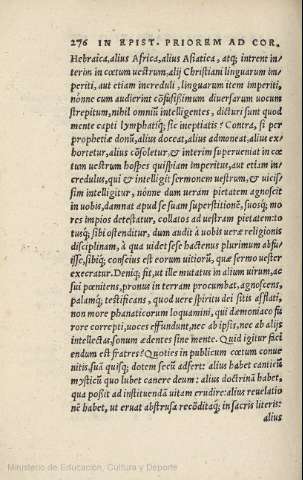 276 IN EPIST. PRIOREM AD COR.
Hebraica, alius Africa, alius Asiatica, atq; intrent in/
terim in cœtum uestrum, alij Christiani linguarum im/
periti, aut etiam increduli, linguarum item imperiti,
nónne cum audierint cõfusißimum diuersarum uocum
strepitum, nihil omniũ intelligentes, dicturi sunt quod
mente capti lymphatiq; sic ineptiatis? Contra, si per
prophetiæ donũ, alius doceat, alius admoneat, alius ex/
hortetur, alius cõsoletur, & interim superueniat in cœ
tum uestrum hospes quispiam imperitus, aut etiam in/
credulus, qui & intelligit sermonem uestrum, & uicis/
sim intelligitur, nónne dum ueram pietatem agnoscit
in uobis, damnat apud se suam superstitionẽ, suosq; mo
res impios detestatur, collatos ad uestram pietatem: to
tusq; sibi ostenditur, dum audit à uobis ueræ religionis
disciplinam, à qua uidet sese hactenus plurimum abfu/
isse, sibiq; conscius est eorum uitiorũ, quæ sermo uester
execratur. Deniq; fit, ut ille mutatus in alium uirum, ac
sui pœnitens, pronus in terram procumbat, agnoscens,
palamq; testificans, quod uere spiritu dei sitis afflati,
non more phanaticorum loquamini, qui dæmoniaco fu
rore correpti, uoces effundunt, nec ab ipsis, nec ab alijs
intellectas, sonum ædentes sine mente. Quid igitur faci
endum est fratres? Quoties in publicum cœtum conue
nitis, suã quisq; dotem secũ adfert: alius habet canticũ
mysticũ quo lubet canere deum: alius doctrinã habet,
qua poßit ad instituendã uitam erudire: alius reuelatio
nẽ habet, ut eruat abstrusa recõditaq; in sacris literis:
alius
Ministerio de Educación, Cultura y Deporte